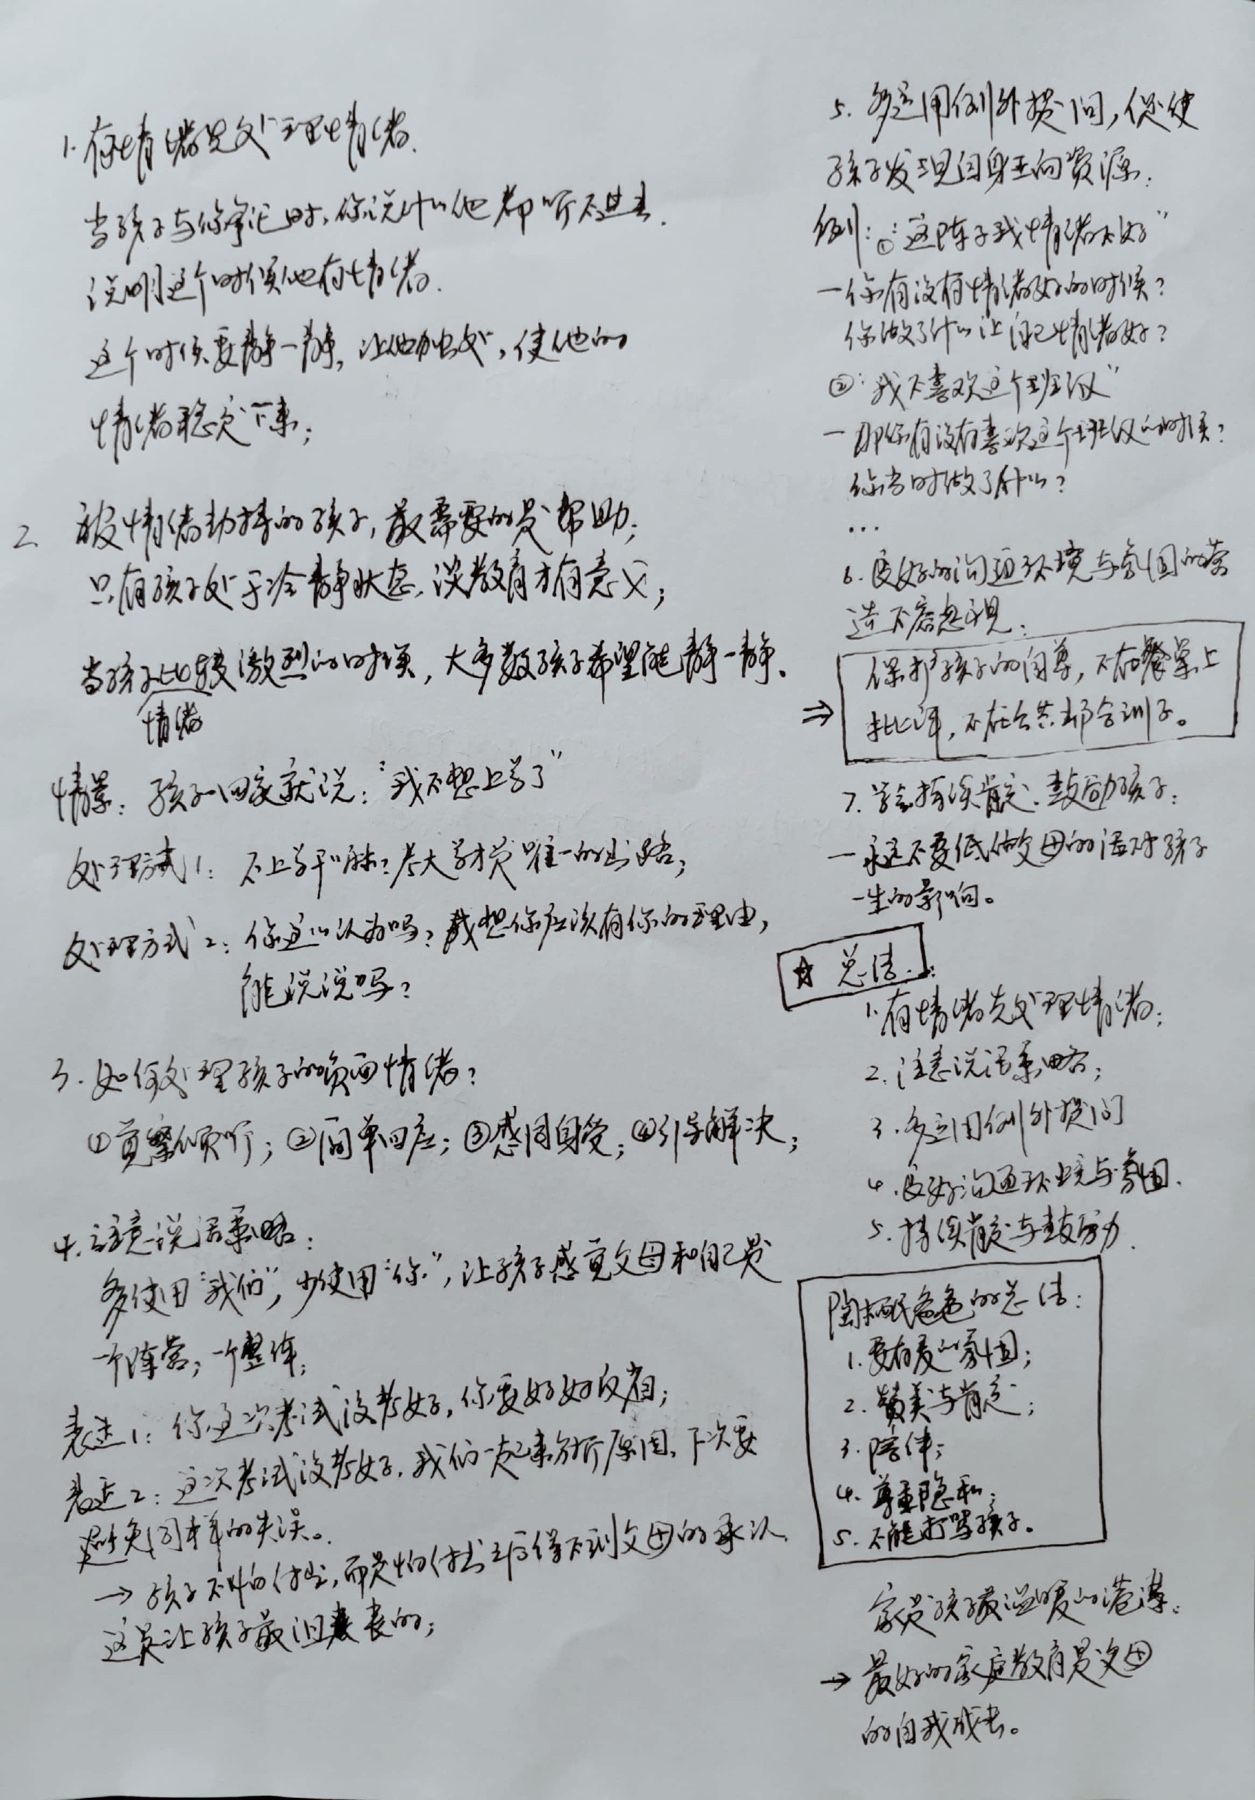 1. 有情绪是处理情绪.
当孩子与你争论时, 你说什么他都听不进去.
说明这个时候他有情绪.
这个时候要静一静, 让他独处, 使他的
情绪稳定下来;
2. 被情绪劫持的孩子, 最需要的是帮助;
只有孩子处于冷静状态, 谈教育才有意义;
当孩子情绪比较激烈的时候, 大多数孩子希望能静一静.
情景: 孩子一回家就说: "我不想上学了"
处理方式1: 不上学干嘛? 考大学才是唯一的出路;
处理方式2: 你这么认为吗? 我想你应该有你的理由,
能说说吗?
3. 如何处理孩子的负面情绪?
①觉察倾听; ②简单回应; ③感同身受; ④引导解决;
4. 注意说话策略:
多使用"我们", 少使用"你", 让孩子感觉父母和自己是
一个阵营, 一个整体;
表述1: 你这次考试没考好, 你要好好反省;
表述2: 这次考试没考好, 我们一起来分析原因, 下次要
避免同样的失误。
→ 孩子不怕付出, 而是怕付出之后得不到父母的承认.
这是让孩子最沮丧的;
5. 多运用例外提问, 促使
孩子发现自身正向资源;
例: ①"这阵子我情绪不好"
一你有没有情绪好的时候?
你做了什么让自己情绪好?
②"我不喜欢这个班级"
一那你有没有喜欢这个班级的时候?
你当时做了什么?
...
6. 良好的沟通环境与氛围的营
造不容忽视;
⇒ 保护孩子的自尊, 不在餐桌上
批评, 不在公共场合训子。
7. 学会持续肯定、鼓励孩子;
一永远不要低估父母的话对孩子
一生的影响。
☆ 总结:
1. 有情绪先处理情绪;
2. 注意说话策略;
3. 多运用例外提问
4. 良好沟通环境与氛围.
5. 持续肯定与鼓励.
陶栖民爸爸的总结:
1. 要有爱的氛围;
2. 赞美与肯定;
3. 陪伴;
4. 尊重隐私;
5. 不能打骂孩子。
家是孩子最温暖的港湾;
→ 最好的家庭教育是父母
的自我成长。